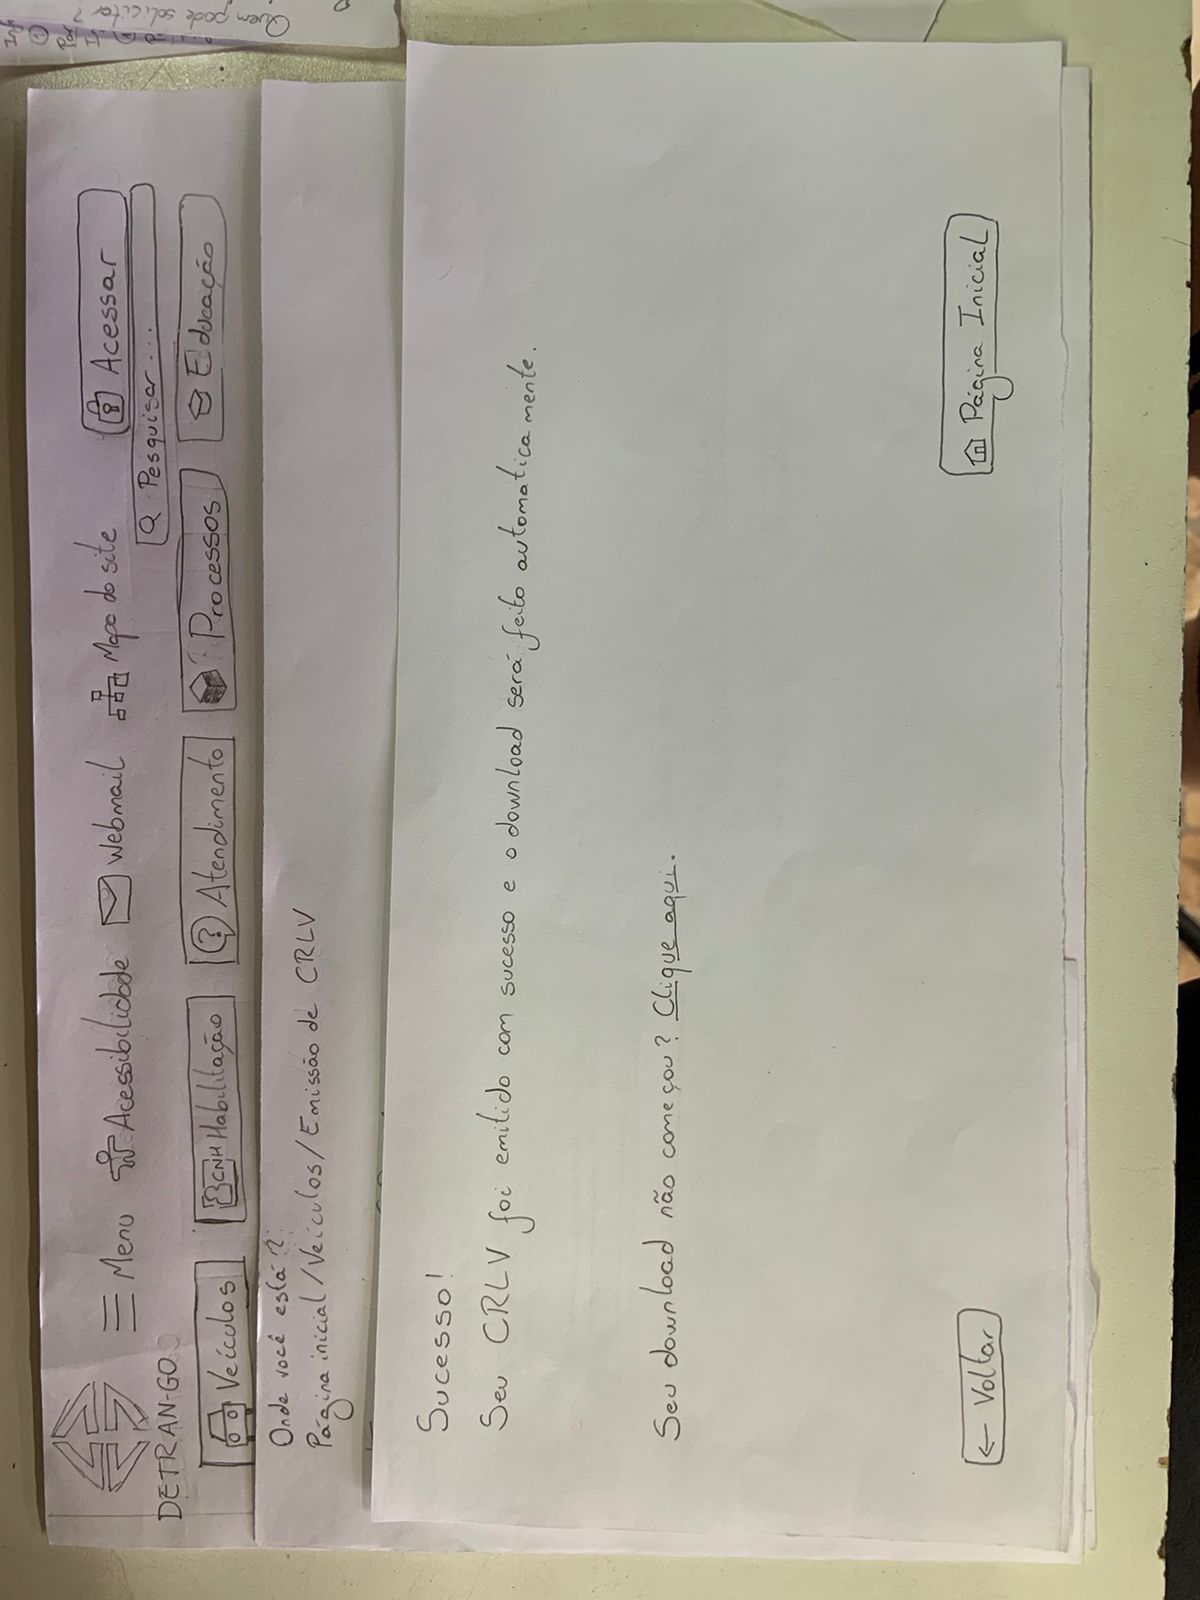 Menu Acessibilidade Webmail Mapa do site Acessar
Pesquisar ...
DETRAN-GO
Veículos CNH Habilitação ? Atendimento Processos Educação
Onde você está?
Página inicial/Veículos/Emissão de CRLV
Sucesso!
Seu CRLV foi emitido com sucesso e o download será feito automaticamente.
Seu download não começou? Clique aqui.
← Voltar
Página Inicial
Quem pode solicitar?